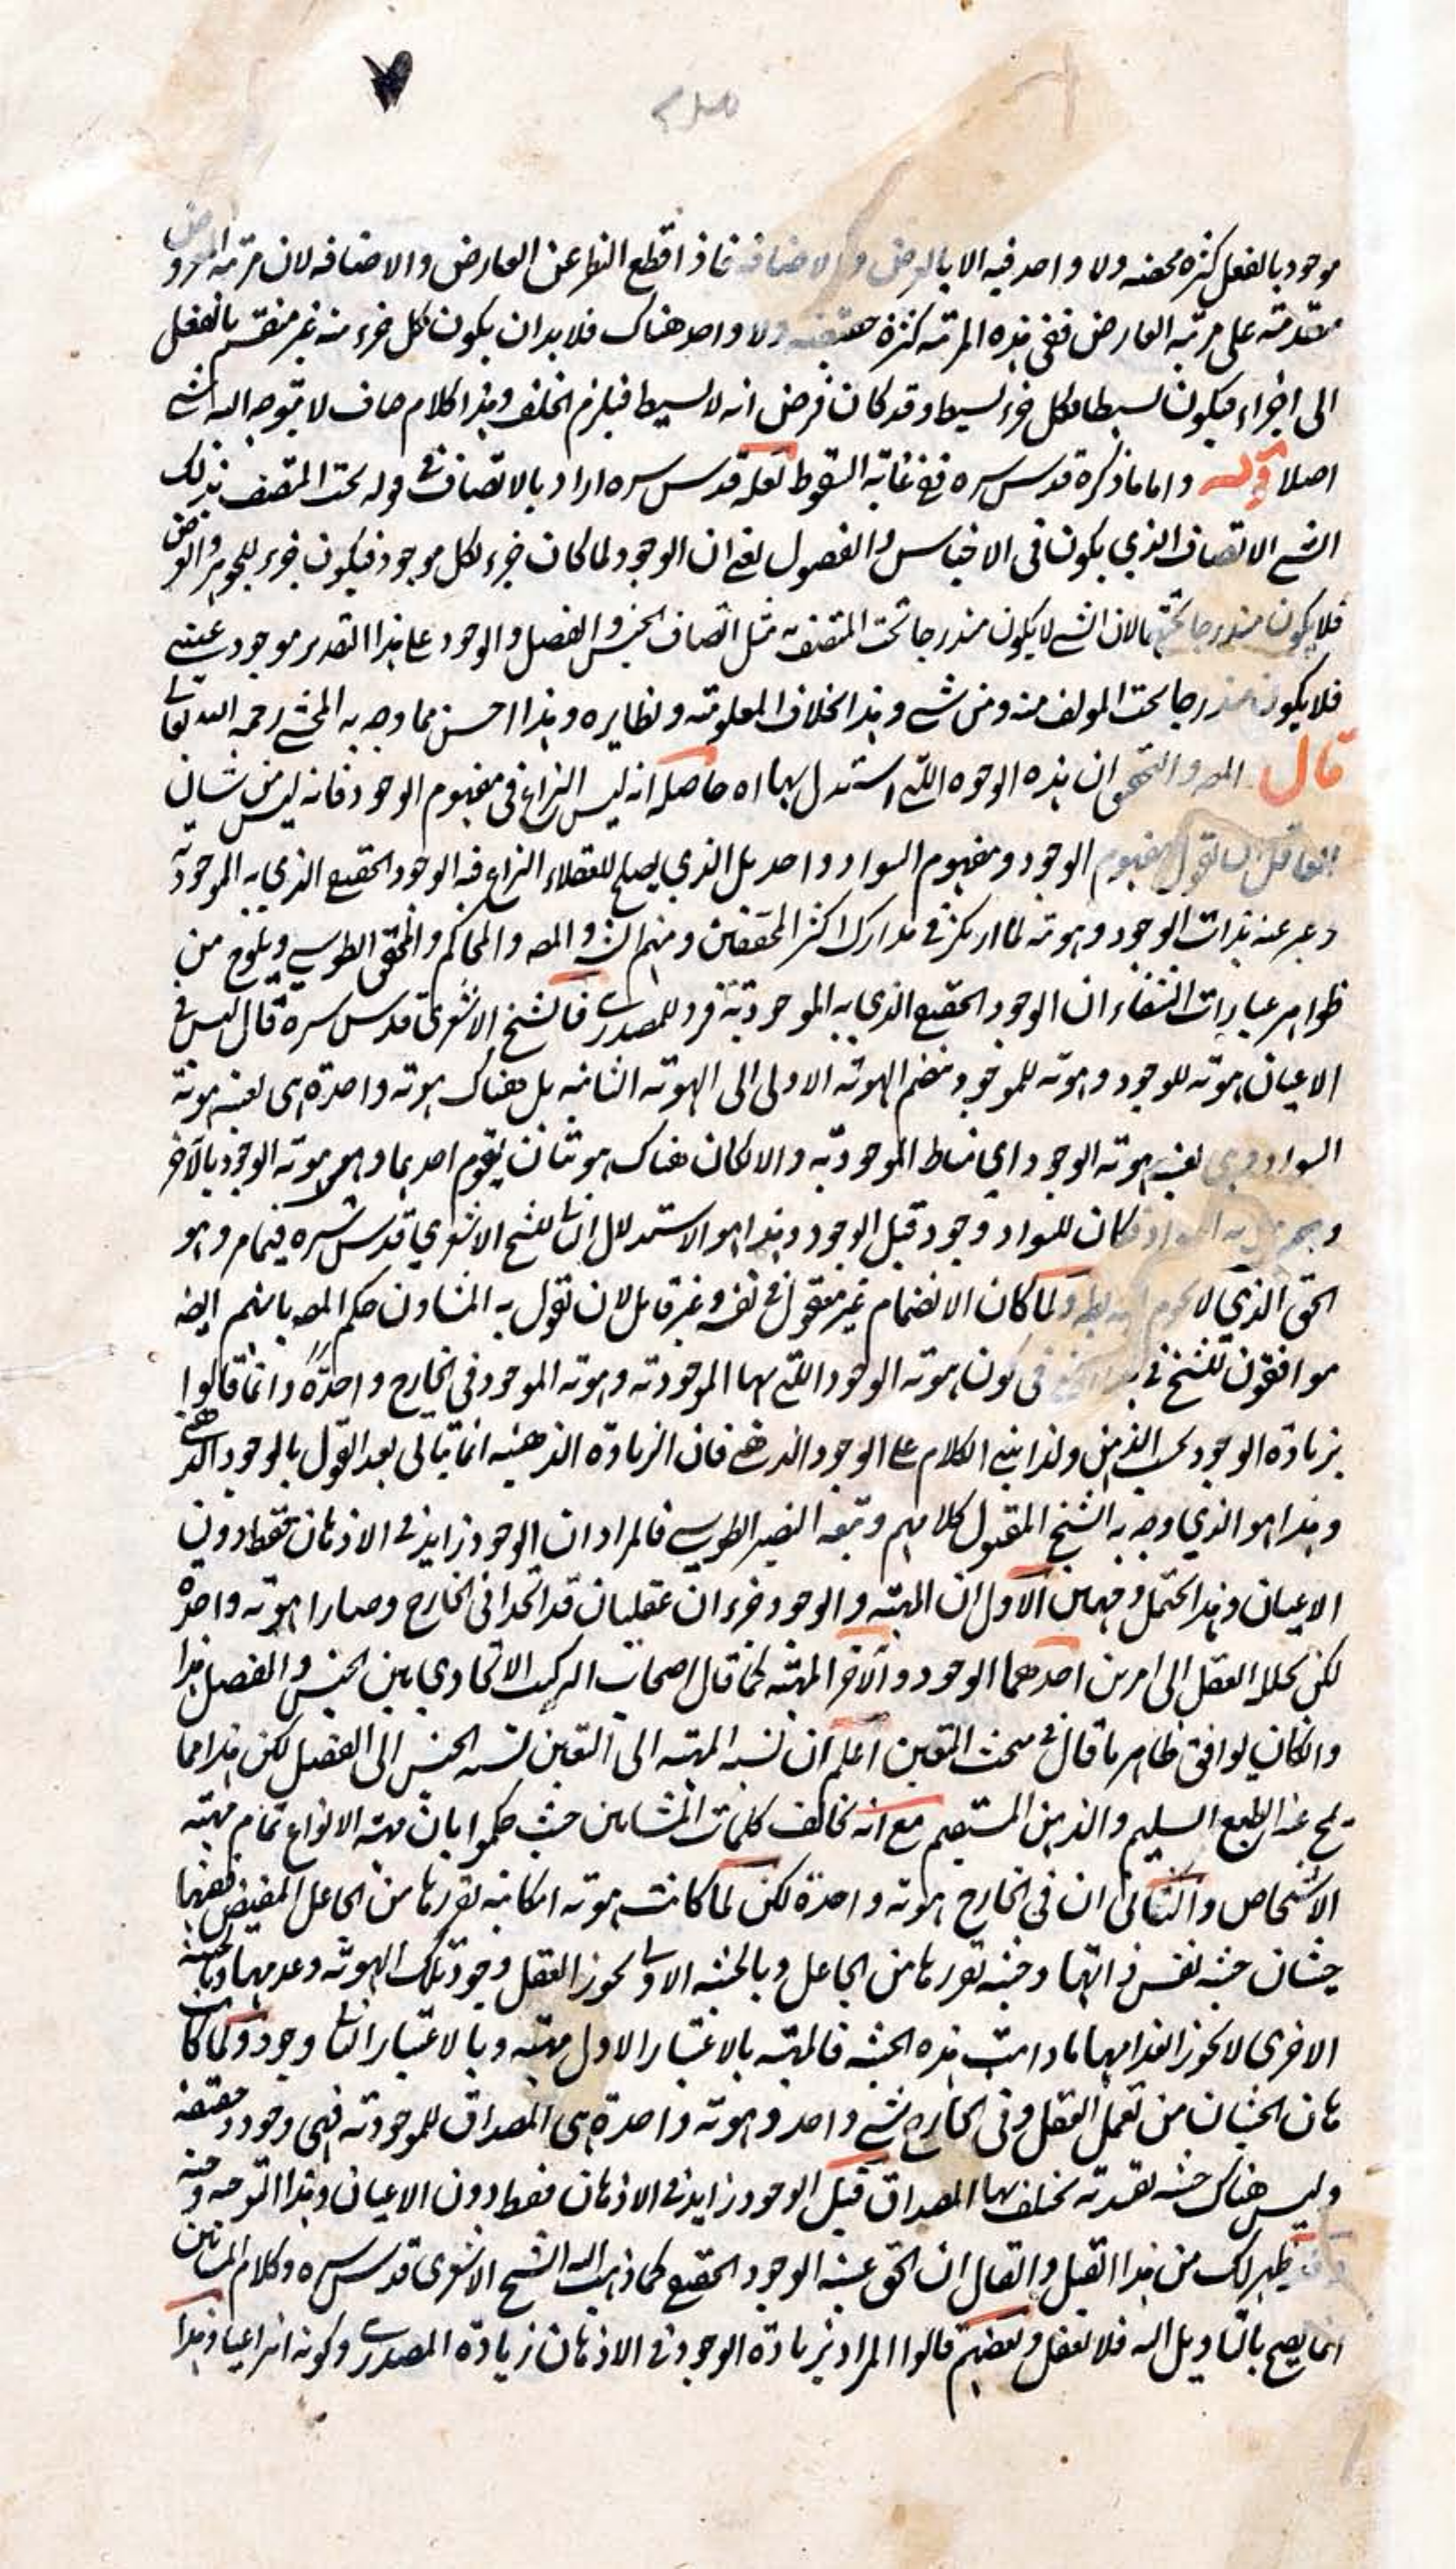 موجود بالفعل كثرة محضه ولا واحد فيه الا بالعرض والاضافة فاذا قطع النظر عن العارض والاضافه لان مرتبه المعروض
متقدمته على مرتبه العارض ففى هذه المرتبه كثرة حقيقية ولا واحد هناك فلا بد ان يكون كل جزء منه غير منقسم بالفعل
الى اجزاء فيكون بسيطا فكل جزء بسيط وقد كان فرض انه لا بسيط فيلزم الخلف وهذا كلام صاف لا يتوجه اليه شئ
اصلا قوله واما ما ذكره قدس سره ففى غاية السقوط لعله قدس سره اراد بالاتصاف فى قوله تحت المتصف بذلك
الشئ الاتصاف الذي يكون فى الاجناس والفصول يعنى ان الوجود لما كان جزء لكل موجود فيكون جزء للجوهر والعرض
فلا يكون مندرجا تحتهما لان الشئ لا يكون مندرجا تحت المتصف به مثل اتصاف الجنس والفصل والوجود على هذا التقدير موجود عينى
فلا يكون مندرجا تحت المولف منه ومن شئ وهذا بخلاف المعلوميته ونظايره وهذا احسن مما وجه به المحشى رحمه الله تعالى
قال المص والتحقيق ان هذه الوجوه التى استدل بها اه حاصله انه ليس النزاع فى مفهوم الوجود فانه ليس من شان
العاقل ان يقول مفهوم الوجود ومفهوم السواد واحد بل الذي يصلح للعقلاء النزاع فيه الوجود الحقيقى الذي به الموجودية
وعبر عنه بذات الوجود وهويته لما ارتكز فى مدارك اكثر المحققين ومنهم الش والمص والمحاكم والمحقق الطوسى ويلوح من
ظواهر عبارات الشفاء ان الوجود الحقيقى الذي به الموجوديته فرد للمصدرى فالشيخ الاشعرى قدس سره قال ليس فى
الاعيان هويته للوجود وهويته للموجود منضم الهويته الاولى الى الهويته الثانيه بل هناك هويته واحدة هى بعينه هويته
السواد وهى بعينه هويته الوجود اي مناط الموجوديه والا لكان هناك هويتان يقوم احديهما وهى هويته الوجود بالآخر
فكان للسواد وجود قبل الوجود وهذا هو الاستدلال الثانى للشيخ الاشعري قدس سره فيما مر وهو
الحق الذي لا يحوم ولما كان الانضمام غير معقول فى نفسه وغير قابل لان تقول به المشاؤن حكم المص بانهم ايضه
موافقون للشيخ فى فى كون هويته الوجود التى بها الموجوديه وهويته الموجود فى الخارج واحدة وانما قالوا
بزيادة الوجود بحسب الذهن ولذا بنى الكلام على الوجود الذهنى فان الزيادة الذهنيه انما يتاتى بعد القول بالوجود الذهنى
وهذا هو الذي وجه به الشيخ المقتول كلامهم وتبعه النصير الطوسى فالمراد ان الوجود زايد فى الاذهان فقط دون
الاعيان وهذا يحتمل وجهين الاول ان المهيته والوجود جزءان عقليان قد اتحدا فى الخارج وصارا هويته واحدة
لكن يحللا العقل الى امرين احدهما الوجود والآخر المهيته كما قال اصحاب التركيب الاتحادي بين الجنس والفصل هذا
وان كان يوافق ظاهر ما قال فى مبحث التعين اعلم ان نسبه المهيته الى التعين نسبه الجنس الى الفصل لكن هذا مما
يمج عنه الطبع السليم والذهن المستقيم مع انه يخالف كلمات المشائين حيث حكموا بان مهيته الانواع تمام مهيته
الاشخاص والثانى ان فى الخارج هويته واحدة لكن لما كانت هويته امكانيه تقررها من الجاعل المفيض ففيها
حيثيتان حيثيه نفس ذاتها وحيثيه تقررها من الجاعل وبالحيثيه الاولى يجوز العقل وجود تلك الهويته وعدمها وبالحيثيه
الاخرى لا يجوز انعدامها مادامت هذه الحيثيه فالمهيته بالاعتبار الاول مهيته وبالاعتبار الثانى وجود ولما كانت
هاتان الحيثيتان من تعمل العقل وفى الخارج شئ واحد وهويته واحدة هى المصداق للموجوديته فهى وجود حقيقه
وليس هناك حيثيه تقييديه يختلف بها المصداق قيل الوجود زايد فى الاذهان فقط دون الاعيان وهذا التوجيه وجيه
وقد ظهر لك من هذا القيل والقال ان الحق عينيه الوجود الحقيقى كما ذهب اليه الشيخ الاشعرى قدس سره وكلام المشائين
انما يصح بالتاويل اليه فلا تغفل وبعضهم قالوا المراد بزيادة الوجود فى الاذهان زيادة المصدرى وكونه انتزاعيا وهذا